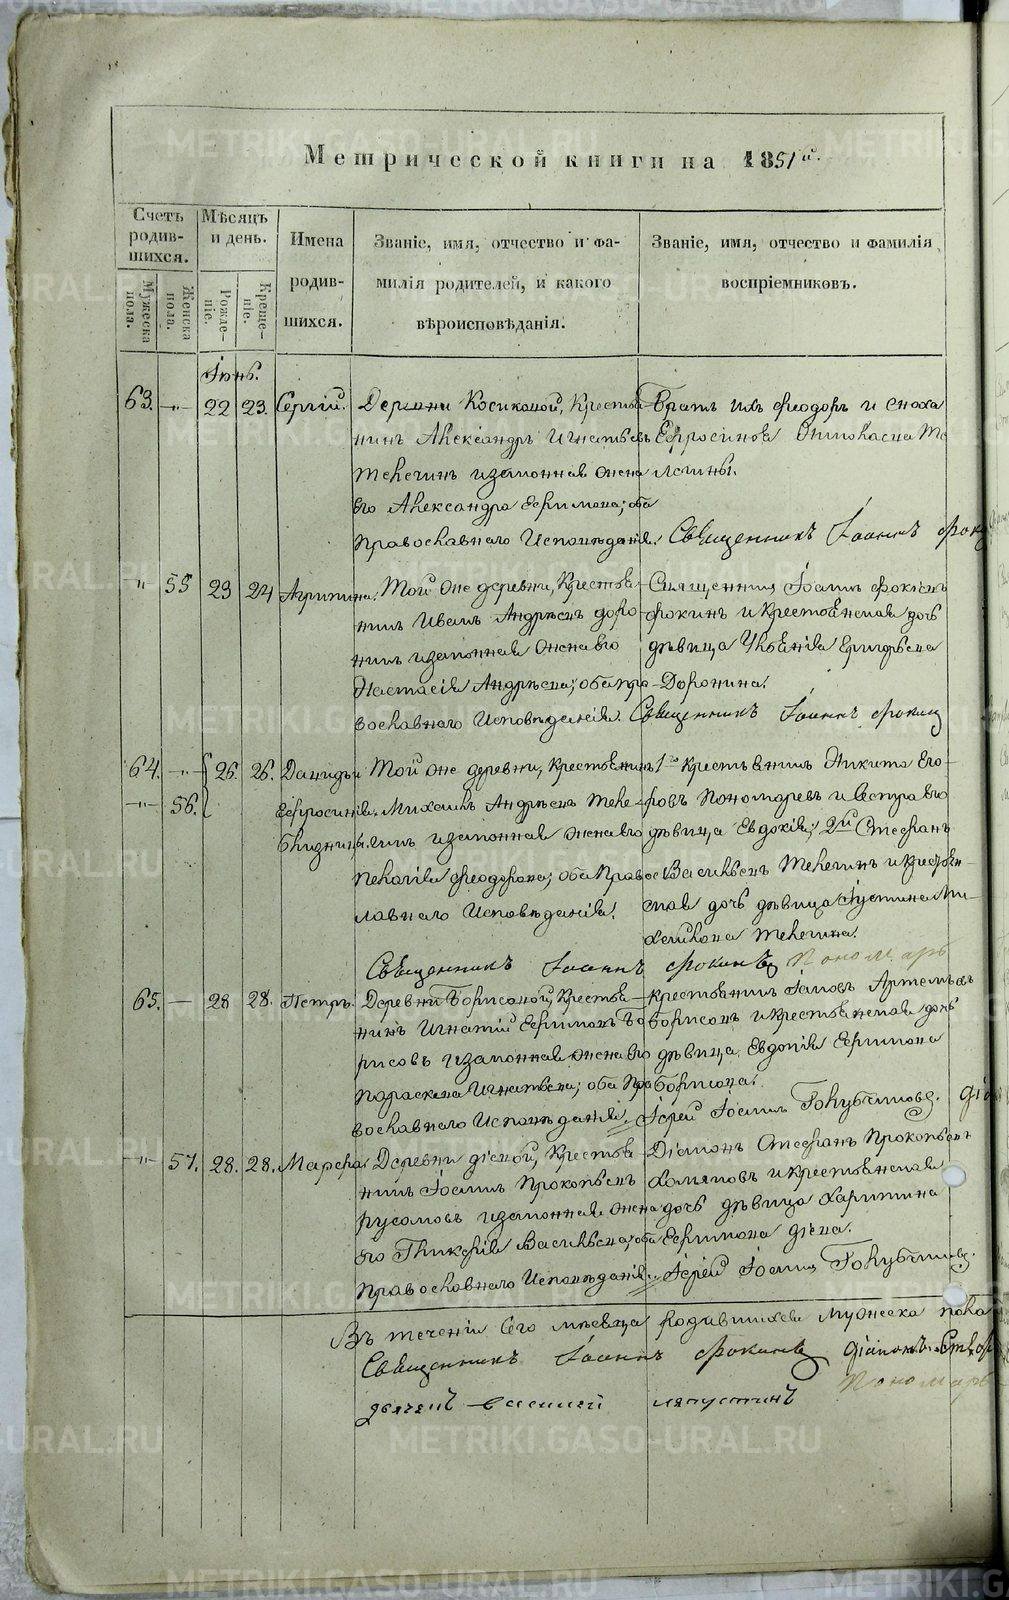 Метрической книги на 1851й.
Счетъ родив- шихся.
Мѣсяцъ и день.
Имена родив- шихся.
Званіе, имя, отчество и фа-
милія родителей, и какого
вѣроисповѣданія.
Званіе, имя, отчество и фамилія
воспріемниковъ.
Мужеска пола.
Женска пола.
Рожде- ніе.
Креще- ніе.
Іюнь.
63. -"- 22 23. Сергій. Деревни Косиковой, Крестья-
нинъ Александръ Игнатьевъ
Телегинъ и законная жена
его Александра Ефимова; оба
Православнаго Исповѣданія.
Братъ ихъ Феодоръ и сноха
Ефросинья
Священникъ Іоаннъ
-"- 55 23 24 Агрипина. Той же деревни, Крестья-
нинъ Иванъ Андреевъ Доро-
нинъ и законная жена его
Настасія Андреева; оба пра-
вославнаго Исповѣданія.
Священникъ Іоаннъ
Фокинъ и крестьянская дочь
дѣвица Ульянія
Доронина.
Священникъ Іоаннъ Фокинъ
64. -"- 26. 26. Давидъ и
-"- 56. Ефросинія.
близницы.
Той же деревни, Крестьянинъ
Михаилъ Андреевъ Теле-
гинъ и законная жена его
Пелагія Феодорова; оба Правос-
лавнаго Исповѣданія.
1го Крестьянинъ Никита Его-
ровъ Пономаревъ и сестра его
дѣвица Евдокія; 2й Стефанъ
Васильевъ Телегинъ и крестьян-
ская дочь дѣвица Іустина Ми-
хайлова Телегина.
Священникъ Іоаннъ Фокинъ Пономарь
65. - 28 28. Петръ. Деревни Борисовой, Крестья-
нинъ Игнатій Ефимовъ Бо-
рисовъ и законная жена его
Параскева Игнатьева; оба Пра-
вославнаго Исповѣданія.
крестьянинъ Іаковъ Артемьевъ
Борисовъ и крестьянская дочь
дѣвица Евдокія Ефимова
Борисова.
Іерей Іоаннъ Голубчиковъ.
-"- 57. 28. 28. Марѳа. Деревни Діевой, Крестья-
нинъ Іоаннъ Прокопьевъ
Русаковъ и законная жена
его Гликерія Васильева; оба
Православнаго Исповѣданія.
Діаконъ Стефанъ Прокопьевъ
Хомяковъ и крестьянская
дочь дѣвица Харитина
Ефимова Діева.
Іерей Іоаннъ Голубчиковъ.
Въ теченіи сего мѣсяца родившихся мужеска пола
Священникъ Іоаннъ Фокинъ Діаконъ
Пономарь
дьячекъ Василий Ляпустинъ